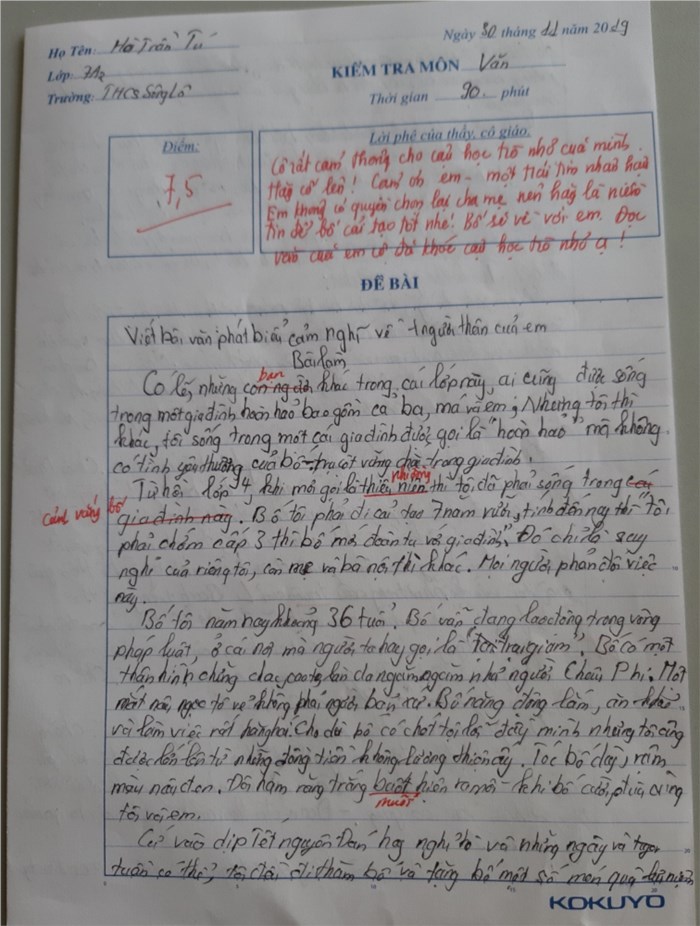 Họ Tên: Hà Trần Tú
Ngày 30 tháng 11 năm 2019
Lớp: 7A2
KIỂM TRA MÔN Văn
Trường: THCS Sông Lô
Thời gian 90 phút
Điểm:
7,5
Lời phê của thầy, cô giáo.
Cô rất cảm thông cho cậu học trò nhỏ của mình.
Hãy cố lên! Cảm ơn em - một trái tim nhân hậu
Em không có quyền chọn lại cha mẹ nên hãy là niềm
tin để bố cải tạo tốt nhé! Bố sẽ về với em. Đọc
văn của em cô đã khóc cậu học trò nhỏ ạ!
ĐỀ BÀI
Viết bài văn phát biểu cảm nghĩ về 1 người thân của em
Bài làm
bạn
Có lẽ, những con người khác trong cái lớp này, ai cũng được sống
trong một gia đình hoàn hảo bao gồm cả ba, má và em; Nhưng tôi thì
khác, tôi sống trong một cái gia đình được gọi là "hoàn hảo" mà không
có tình yêu thương của bố - trụ cột vững chãi trong gia đình.
nhi đồng
Từ hồi lớp 4, khi mới gọi là thiếu niên thì tôi đã phải sống trong cái
cảnh vắng bố
gia đình này. Bố tôi phải đi cải tạo 7 năm rưỡi, tính đến nay thì "tôi
phải chớm cấp 3 thì bố mới đoàn tụ với gia đình". Đó chỉ là suy
nghĩ của riêng tôi, còn mẹ và bà nội thì khác. Mọi người phản đối việc
này.
Bố tôi năm nay khoảng 36 tuổi. Bố vẫn đang lao động trong vòng
pháp luật, ở cái nơi mà người ta hay gọi là "Trại giam". Bố có một
thân hình chững chạc, cao to, làn da ngăm ngăm như người Châu Phi. Mới
nhìn vào, ngỡ tớ vẻ không phải người bản xứ. Bố năng động lắm, ăn khỏe
và làm việc rất hăng hái. Cho dù bố có chót tội lỗi đầy mình nhưng tôi cũng
được lớn lên từ những đồng tiền không lương thiện ấy. Tóc bố dày, rậm
màu nâu đen. Đôi hàm răng trắng buốt hiện ra mỗi khi bố cười, đùa cùng
muốt
tôi và em.
Cứ vào dịp Tết nguyên Đán hay nghỉ hè và những ngày
tuần có thể, tôi lại đi thăm bố và tặng bố một số món quà
KOKUYO